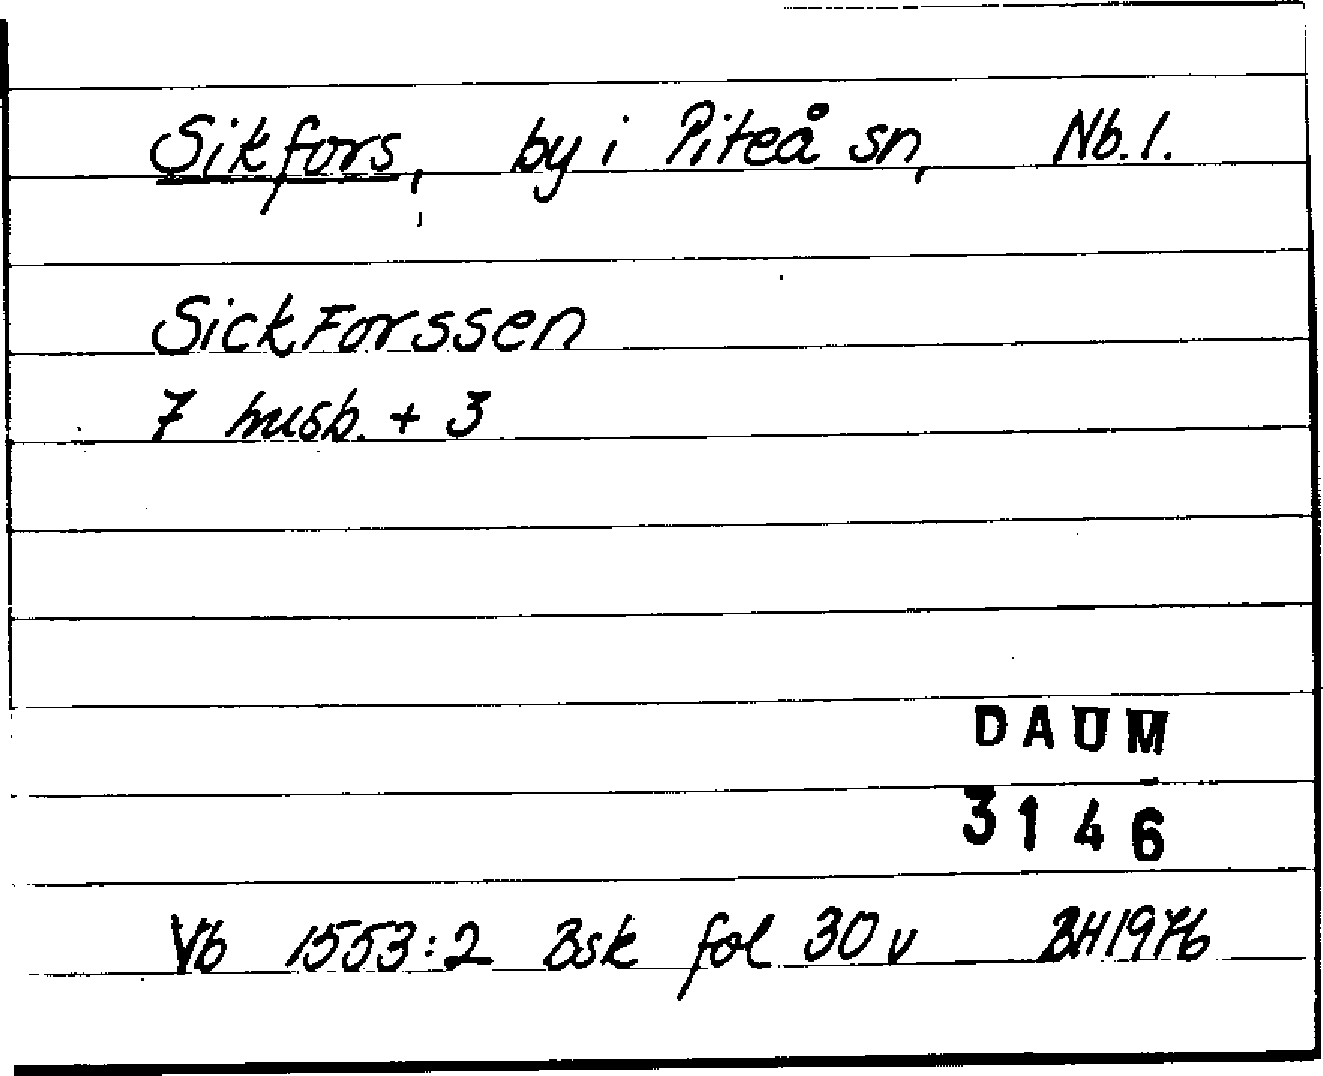 Sikfors, by i Piteå sn, Nb. l.
SickForssen
7 husb. + 3
DAUM
3146
Vb 1553:2 Bsk fol 30 v BH 1976